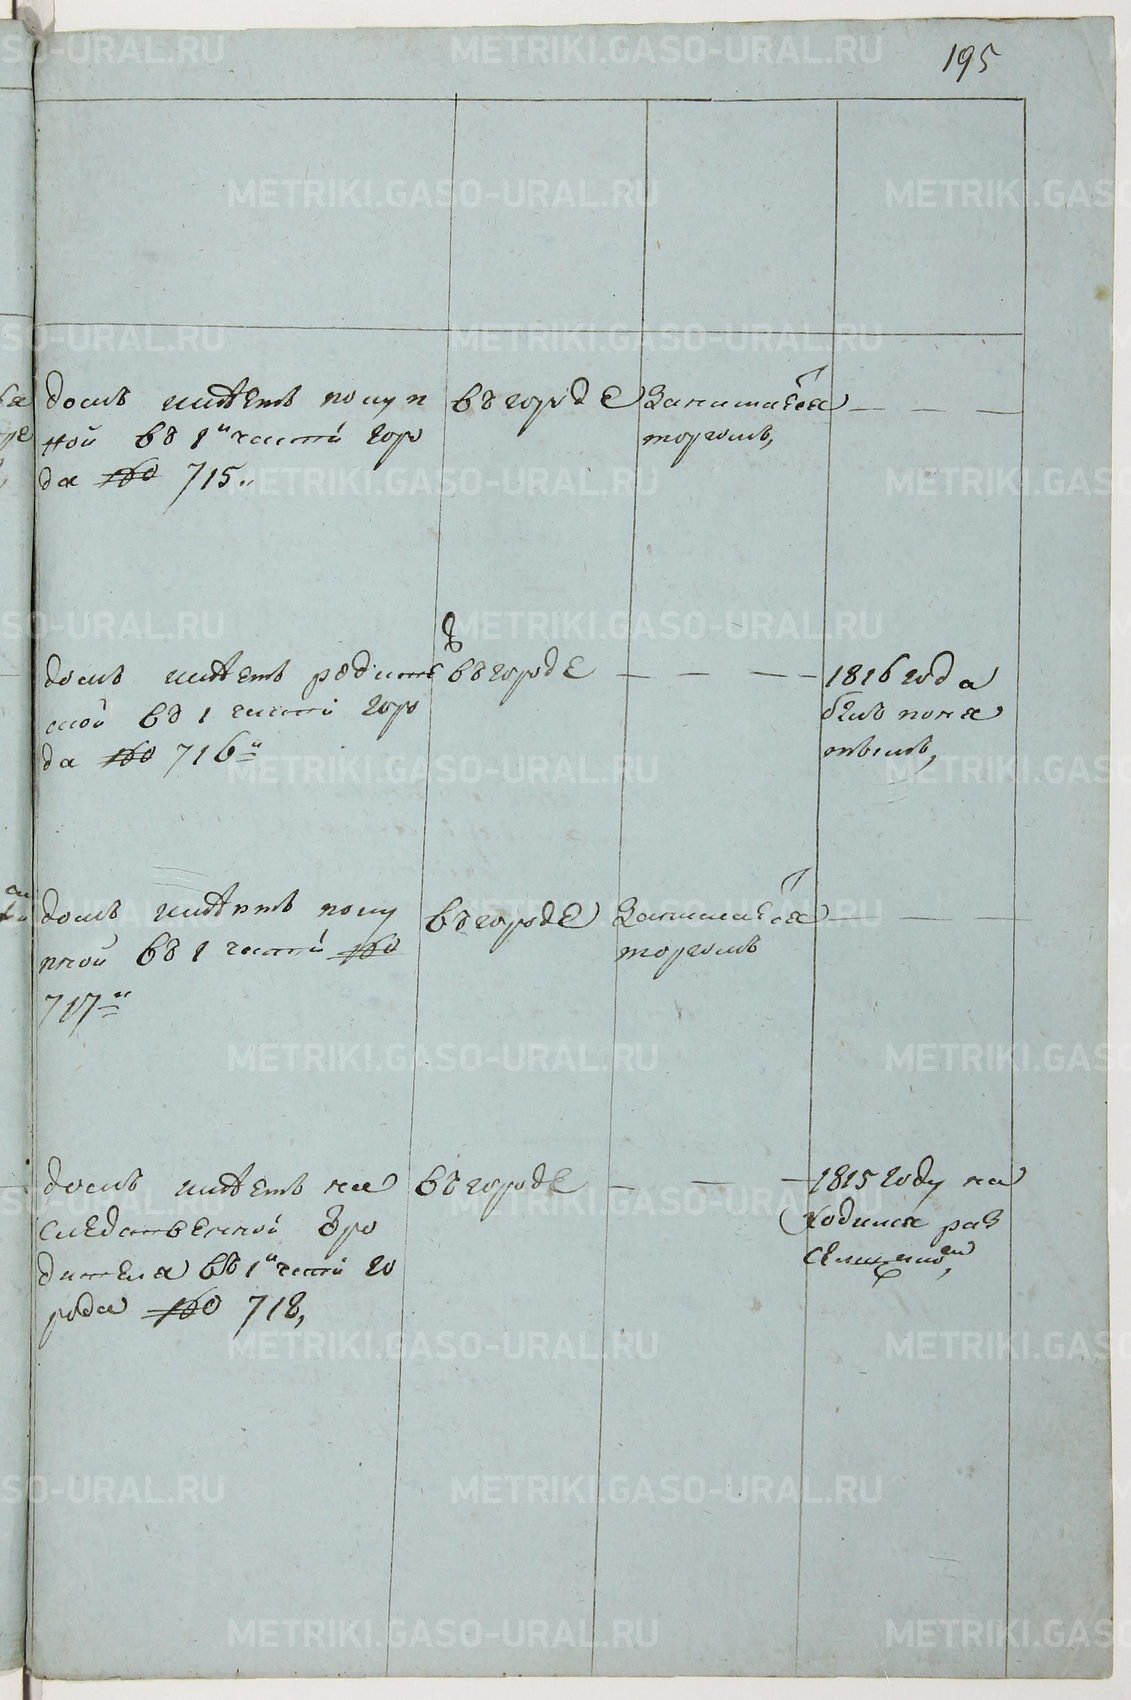 195
домъ имѣетъ покуп
ной въ 1й части горо
да № 715.
въ городе
Занимается
торгомъ,
домъ имѣетъ родите
ской въ 1 части горо
да № 716й
въ городе
1816 года
былъ
домъ имѣетъ поку
пной въ 1 части №
717й
въ городе
Занимается
торгомъ
домъ имѣетъ на
следственной
дителя въ 1й части го
рода № 718,
въ городе
1815 году на
ходился
METRIKI.GASO-URAL.RU